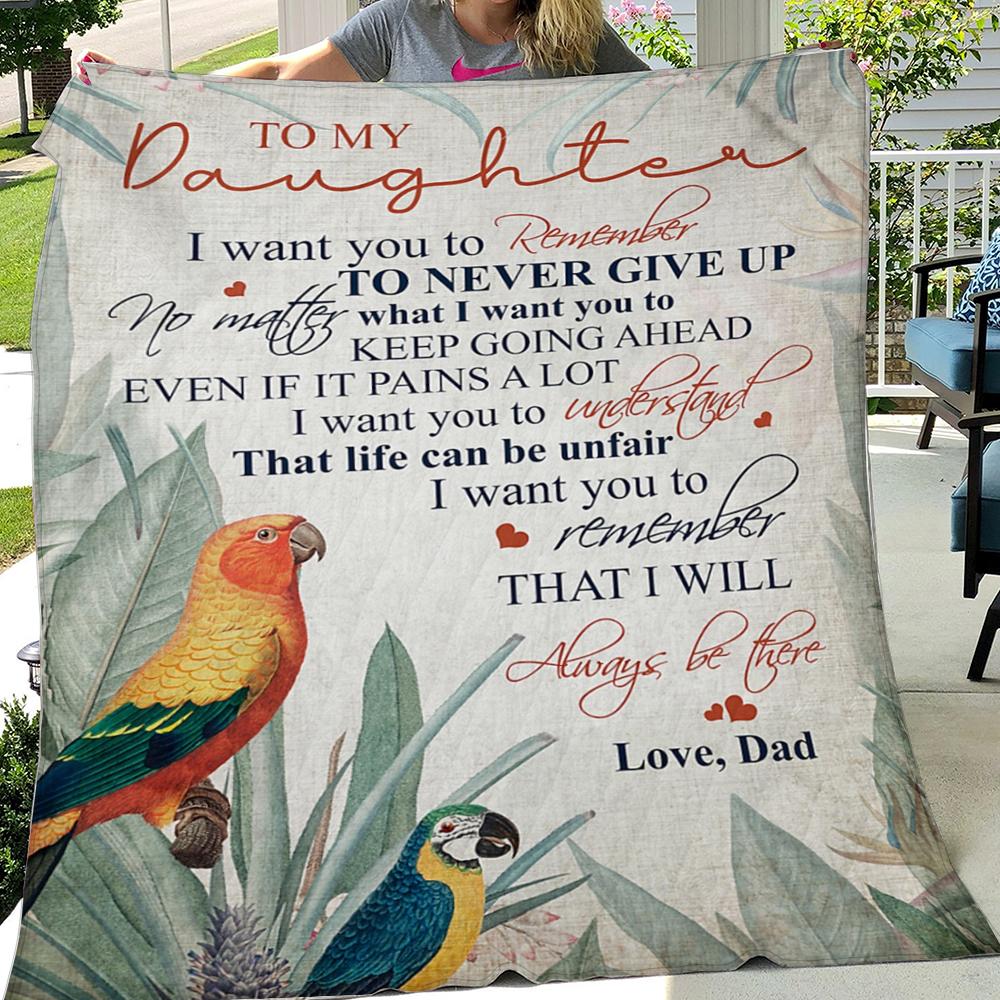 TO MY
Daughter
I want you to Remember
TO NEVER GIVE UP
No matter what I want you to
KEEP GOING AHEAD
EVEN IF IT PAINS A LOT
I want you to understand
That life can be unfair
I want you to
remember
THAT I WILL
Always be there
Love, Dad